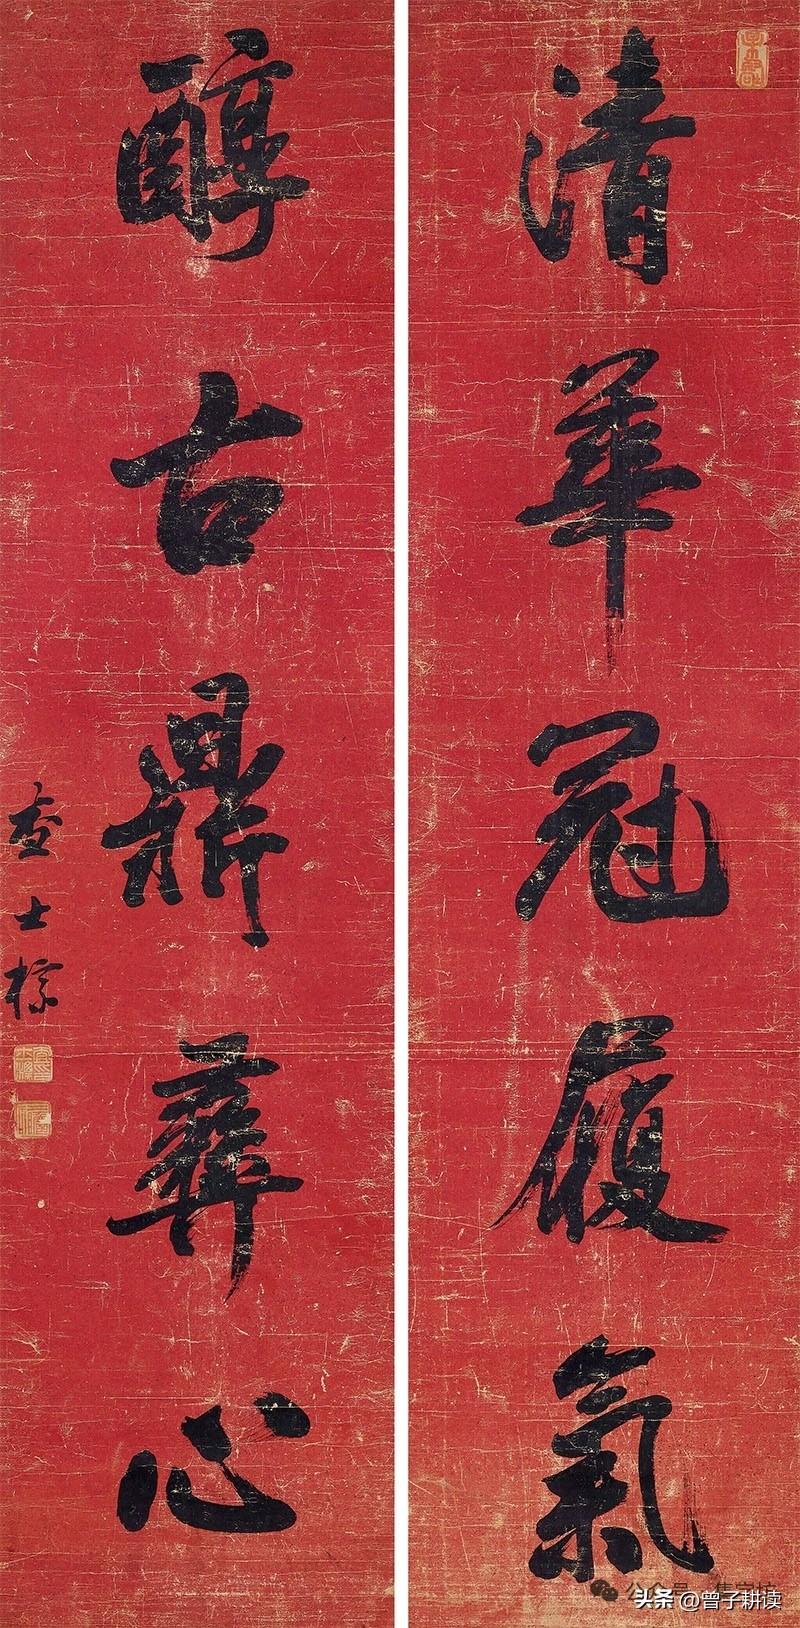 清華冠履氣
醇古鼎彝心
查士標
头条 @曾子耕读